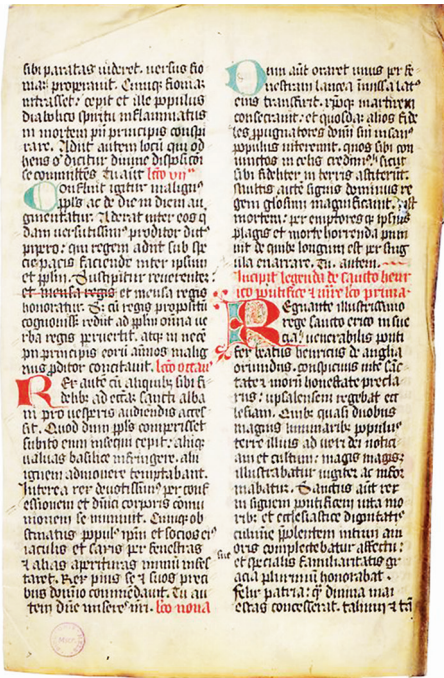 sibi paratas uideret. uersus fio
nia properauit. Cumque fionia
intrasset: cepit et ille populus
diabolico spiritu inflammatus
in mortem pii principis conspi
rare. Adiit autem locum qui od
hens o dicitur diuine disposicioni
se committens. Tu aute lco vii
Confluit igitur malignus
ppls ac de die in diem au
gmentatur. Aderat inter eos q
dam uersutissimus proditor dict
pipero: qui regem adiit sub spe
cie pacis faciende inter ipsum
et pplm. Suscipitur reuerenter:
et mensa regis et mensa regis
honoratur. Sed cum regis propositum
cognouisset redit ad pplm omnia ue
rba regis peruertit. atque in nece
pii principis eorum animos malig
nus proditor concitauit. lco octaua
Rex aute cum aliquibus sibi fi
delibus ad eccam sancti alba
ni pro uesperis audiendis acces
sit. Quod dum ppls comperisset
subito eum insequi cepit: alii
ualuas basilice infringere. alii
ignem admouere temptabant.
Interea rex deuotissimus per conf
essionem et dnici corporis comu
nionem se muniuit. Cumque ob
stinatus populus regem et socios eius
iaculis et saxis per fenestras
et alias aperituras inminus infes
taret. Rex pius se et suos preci
bus domino commendauit. Tu au
tem dne miserere nri. lco nona
Dum aut oraret unus per fe
nestram lancea inmissa lat
eius transfixit. ipsumque martirem
consecrauit. et quosdam alios fide
les propugnatores domini sui insan
populus interemit. quos sibi con
iunctos in celis credimus sicut
sibi fideliter in terris astiterunt.
Multis aute signis dominus re
gem gloriosum magnificauit. Post
mortem: peremptores eius ipsius
plagis et morte horrenda puni
uit de quibus longum est per singu
la enarrare. Tu autem.
Incipit legenda de sancto henri
co pontifice et mre lco prima
Regnante illustrissimo
rege sancto erico in sue
cia: uenerabilis ponti
fex beatus henricus de anglia
oriundus. conspicuus uite san
tate et morum honestate precla
rus: upsalensem regebat ec
lesiam. Quibus quasi duobus
magnis luminaribus populus
terre illius ad ueri dei notici
am et cultum: magis magisque
illustrabatur iugiter ac infor
mabatur. Sanctus aut rex
insignem pontificem uita mo
ribus et ecclesiastice dignitatis
culmine prepollentem intimi am
oris complectebatur affectu:
et specialis familiaritatis gr
acia plurimum honorabat.
Felix patria: quam diuina mai
estas concesserat. talium et tan
sue